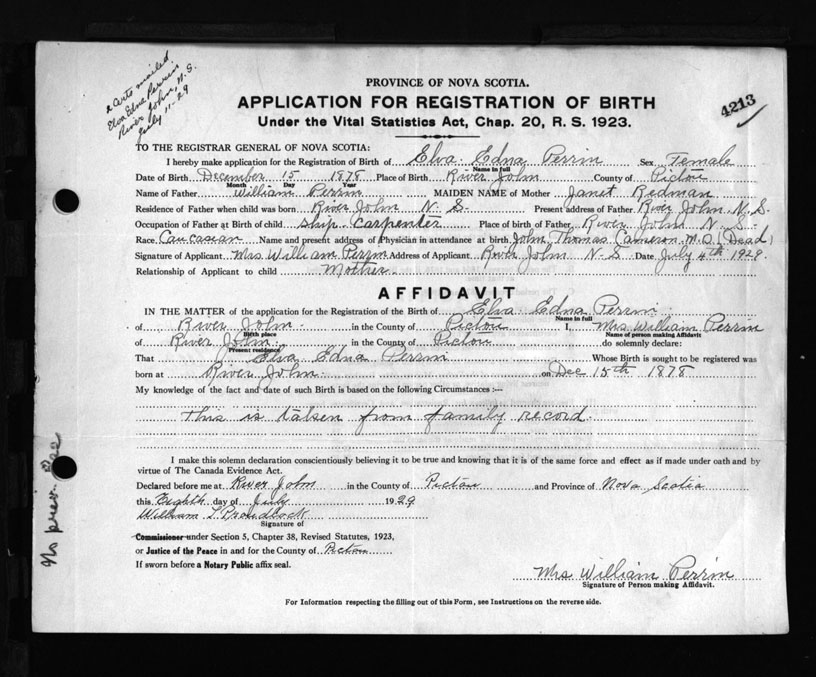 2 Certs mailed
Elva Edna Perrin
River John, N.S.
July 11-29
PROVINCE OF NOVA SCOTIA.
4213
APPLICATION FOR REGISTRATION OF BIRTH
Under the Vital Statistics Act, Chap. 20, R. S. 1923.
TO THE REGISTRAR GENERAL OF NOVA SCOTIA:
I hereby make application for the Registration of Birth of Elva Edna Perrin Sex Female
Name in full
Date of Birth December 15 1878 Place of Birth River John County of Pictou
Month Day Year
Name of Father William Perrin MAIDEN NAME of Mother Janet Redman
Residence of Father when child was born River John N. S. Present address of Father River John N. S.
Occupation of Father at Birth of child Ship Carpenter Place of birth of Father River John N. S.
Race Caucasian Name and present address of Physician in attendance at birth John Thomas Cameron M.D. (Dead)
Signature of Applicant Mrs William Perrin Address of Applicant River John N. S. Date July 4th 1929.
Relationship of Applicant to child Mother
AFFIDAVIT
IN THE MATTER of the application for the Registration of the Birth of Elva Edna Perrin
Name in full
of River John in the County of Pictou I, Mrs William Perrin
Birth place Name of person making Affidavit
of River John in the County of Pictou do solemnly declare:
Present residence
That Elva Edna Perrin Whose Birth is sought to be registered was
born at River John on Dec 15th 1878
My knowledge of the fact and date of such Birth is based on the following Circumstances :—
This is taken from family record.
I make this solemn declaration conscientiously believing it to be true and knowing that it is of the same force and effect as if made under oath and by
virtue of The Canada Evidence Act.
Declared before me at River John in the County of Pictou and Province of Nova Scotia
this Eighth day of July 1929
William L Proudfoot
Signature of
Commissioner under Section 5, Chapter 38, Revised Statutes, 1923,
or Justice of the Peace in and for the County of Pictou
If sworn before a Notary Public affix seal.
Mrs William Perrin
Signature of Person making Affidavit.
For Information respecting the filling out of this Form, see Instructions on the reverse side.
No prev. Rec